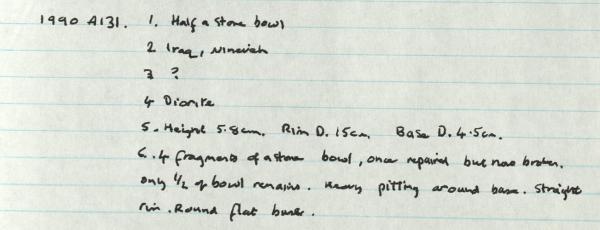 1990 A131. 1. Half a stone bowl
2 Iraq, Nineveh
3 ?
4 Diorite
5. Height 5.8cm. Rim D. 15cm. Base D. 4.5cm.
6. 4 fragments of a stone bowl, once repaired but now broken.
only 1/2 of bowl remains. Heavy pitting around base. Straight
rim. Round flat base.